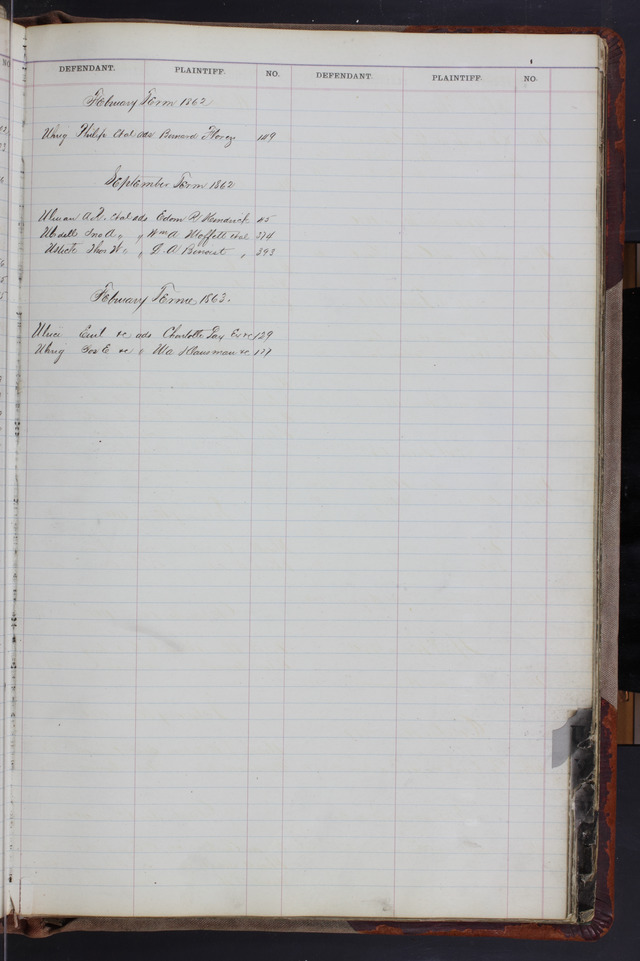 DEFENDANT. PLAINTIFF. NO. DEFENDANT. PLAINTIFF. NO.
February Term 1862
Uhrig Philip et al ads Bernard 149
September Term 1862
Ulman A. et al ads Edom R Kendrick 45
Udell Jno A " " Wm A Moffett et al 374
Thos W " " L A Benoist " 393
February Term 1863.
Ulrici Emil &c ads Charlotte Ex &c 129
Uhrig Jos E &c " Wm Klausman &c